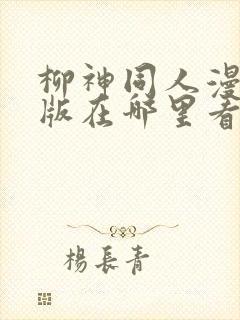 柳神同人漫
版在哪里看
楊長青